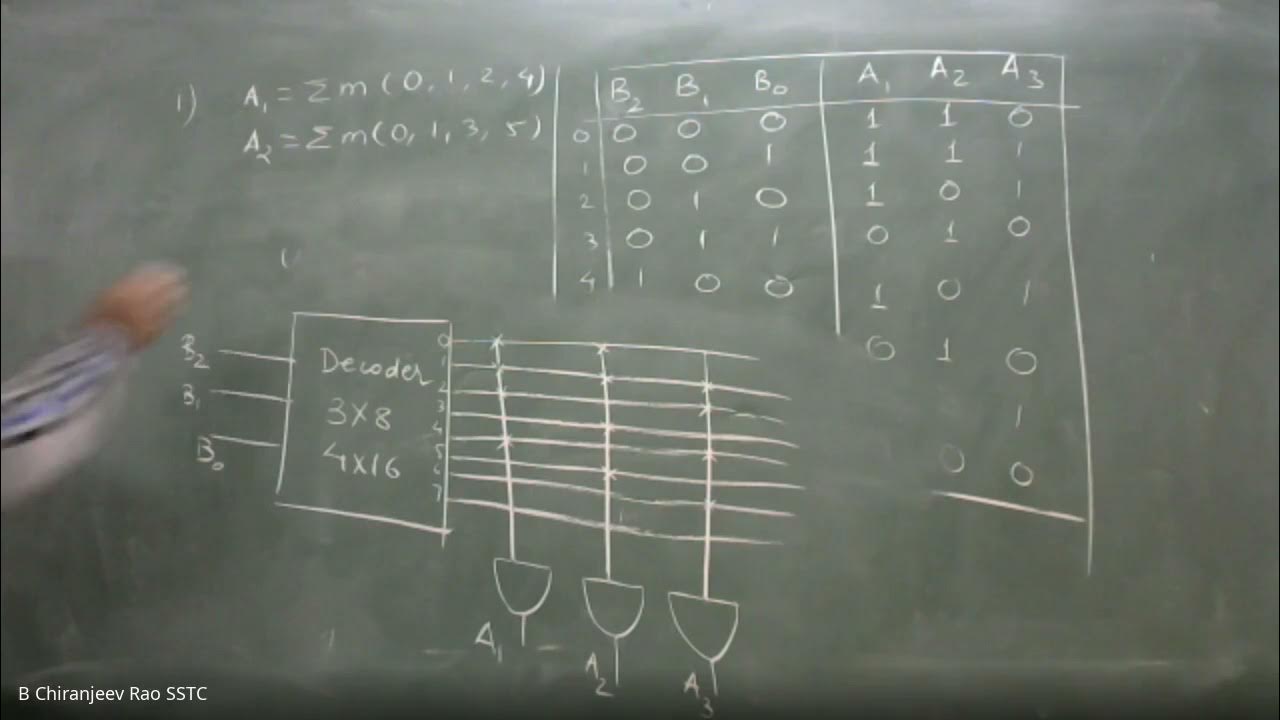 1) A₁ = Σm(0, 1, 2, 4)
A₂ = Σm(0, 1, 3, 5)
B₂ B₁ B₀ A₁ A₂ A₃
0 0 0 0 1 1 0
1 0 0 1 1 1 1
2 0 1 0 1 0 1
3 0 1 1 0 1 0
4 1 0 0 1 0 1
0 1 0
1
0 0
B₂
B₁
B₀
Decoder
3X8
4X16
0
1
2
3
4
5
6
7
A₁
A₂
A₃
B Chiranjeev Rao SSTC